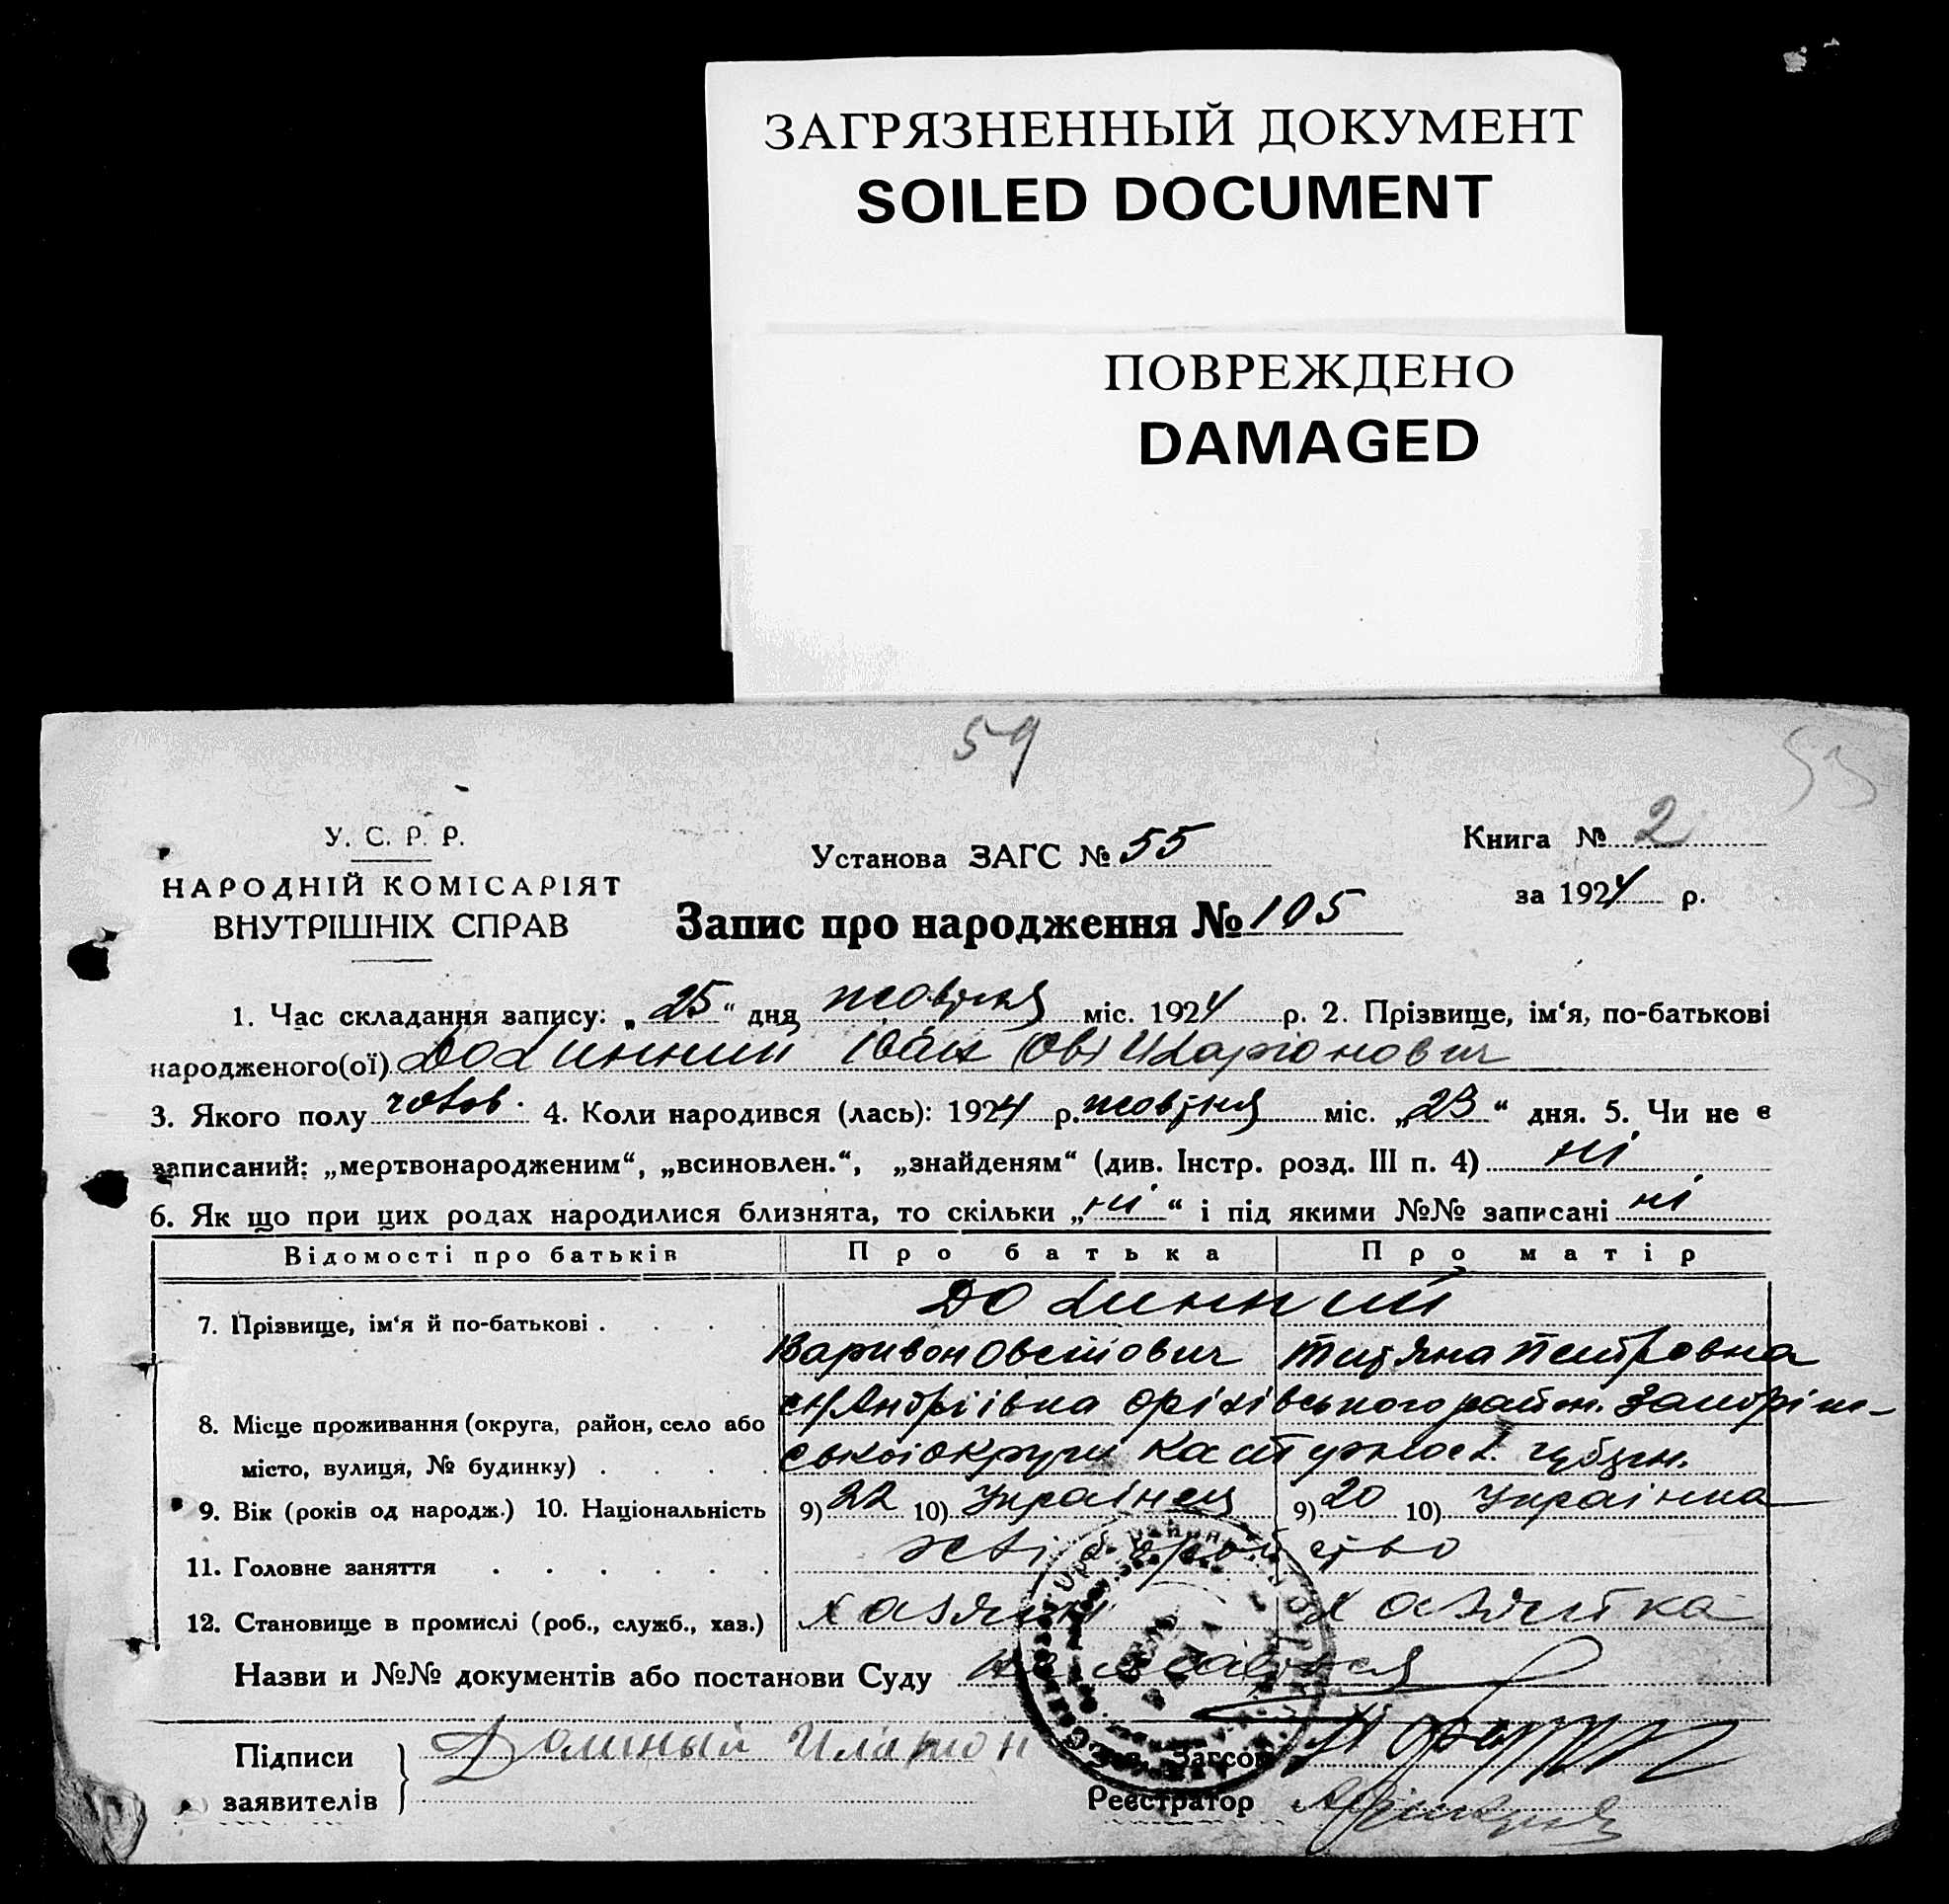 ЗАГРЯЗНЕННЫЙ ДОКУМЕНТ
SOILED DOCUMENT
ПОВРЕЖДЕНО
DAMAGED
59
53
У. С. Р. Р.
НАРОДНІЙ КОМІСАРІЯТ
ВНУТРІШНІХ СПРАВ
Установа ЗАГС № 55
Запис про народження № 105
Книга № 2
за 1924 р.
1. Час складання запису: „25“ дня жовтня міс. 1924 р. 2. Прізвище, ім‘я, по-батькові
народженого(ої) Долинний Іван Іларіонович
3. Якого полу чолов. 4. Коли народився (лась): 1924 р. жовтня міс. „23“ дня. 5. Чи не є
записаний: „мертвонародженим“, „всиновлен.“, „знайденям“ (див. Інстр. розд. III п. 4) ні
6. Як що при цих родах народилися близнята, то скільки „ні“ і під якими №№ записані ні
Відомості про батьків Про батька Про матір
7. Прізвище, ім‘я й по-батькові . . . . Долинний
Варивон Овсійович Титяна Петровна
8. Місце проживання (округа, район, село або с. Андріївка Оріхівського район. Запоріж-
місто, вулиця, № будинку) . . . . ської округи Кат
9. Вік (років од народж.) 10. Національність 9) 22 10) Українец 9) 20 10) Українка
11. Головне заняття . . . . . . хліборобство
12. Становище в промислі (роб., служб., хаз.) хазяїн хазяйка
Назви и №№ документів або постанови Суду
Підписи
заявителів
Долиный Иларион
Зав. Загсом
Реєстратор